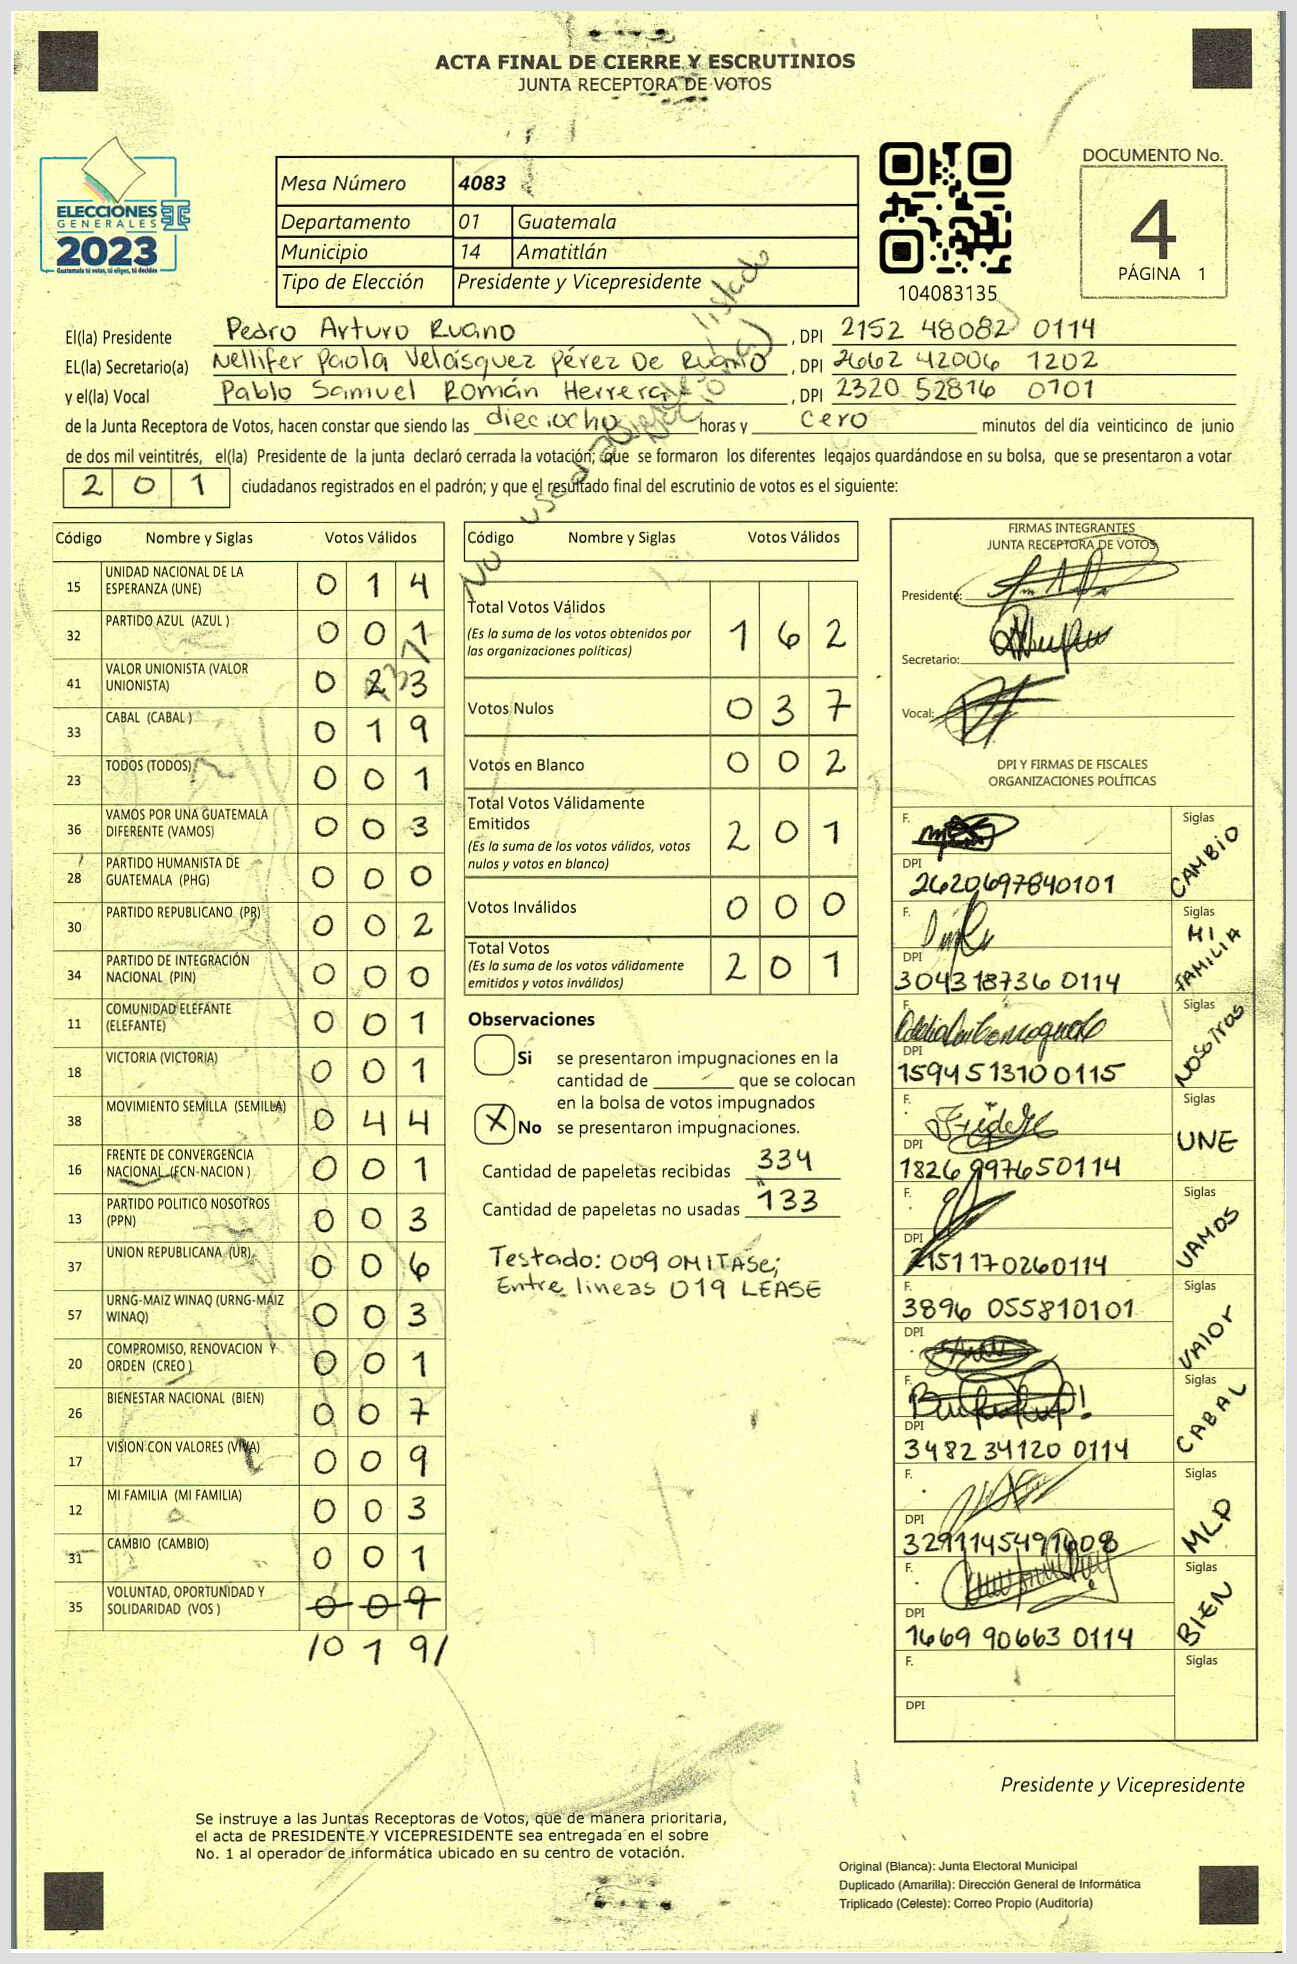 ACTA FINAL DE CIERRE Y ESCRUTINIOS
JUNTA RECEPTORA DE VOTOS
ELECCIONES
GENERALES
2023
Guatemala tú votas, tú eliges, tú decides
Mesa Número 4083
Departamento 01 Guatemala
Municipio 14 Amatitlán
Tipo de Elección Presidente y Vicepresidente
104083135
DOCUMENTO No.
4
PÁGINA 1
El(la) Presidente Pedro Arturo Ruano , DPI 2152 48082 0114
EL(la) Secretario(a) Nellifer Paola Velásquez Pérez De Ruano , DPI 2662 42006 1202
y el(la) Vocal Pablo Samuel Román Herrera , DPI 2320 52816 0101
de la Junta Receptora de Votos, hacen constar que siendo las dieciocho horas y cero minutos del día veinticinco de junio
de dos mil veintitrés, el(la) Presidente de la junta declaró cerrada la votación; que se formaron los diferentes legajos guardándose en su bolsa, que se presentaron a votar
201 ciudadanos registrados en el padrón; y que el resultado final del escrutinio de votos es el siguiente:
Código Nombre y Siglas Votos Válidos
15 UNIDAD NACIONAL DE LA ESPERANZA (UNE) 0 1 4
32 PARTIDO AZUL (AZUL ) 0 0 1
41 VALOR UNIONISTA (VALOR UNIONISTA) 0 2 3
33 CABAL (CABAL ) 0 1 9
23 TODOS (TODOS) 0 0 1
36 VAMOS POR UNA GUATEMALA DIFERENTE (VAMOS) 0 0 3
28 PARTIDO HUMANISTA DE GUATEMALA (PHG) 0 0 0
30 PARTIDO REPUBLICANO (PR) 0 0 2
34 PARTIDO DE INTEGRACIÓN NACIONAL (PIN) 0 0 0
11 COMUNIDAD ELEFANTE (ELEFANTE) 0 0 1
18 VICTORIA (VICTORIA) 0 0 1
38 MOVIMIENTO SEMILLA (SEMILLA) 0 4 4
16 FRENTE DE CONVERGENCIA NACIONAL (FCN-NACION ) 0 0 1
13 PARTIDO POLITICO NOSOTROS (PPN) 0 0 3
37 UNION REPUBLICANA (UR) 0 0 6
57 URNG-MAIZ WINAQ (URNG-MAIZ WINAQ) 0 0 3
20 COMPROMISO, RENOVACION Y ORDEN (CREO ) 0 0 1
26 BIENESTAR NACIONAL (BIEN) 0 0 7
17 VISION CON VALORES (VIVA) 0 0 9
12 MI FAMILIA (MI FAMILIA) 0 0 3
31 CAMBIO (CAMBIO) 0 0 1
35 VOLUNTAD, OPORTUNIDAD Y SOLIDARIDAD (VOS ) 0 0 9
/0 1 9/
Código Nombre y Siglas Votos Válidos
Total Votos Válidos 1 6 2
(Es la suma de los votos obtenidos por
las organizaciones políticas)
Votos Nulos 0 3 7
Votos en Blanco 0 0 2
Total Votos Válidamente
Emitidos 2 0 1
(Es la suma de los votos válidos, votos
nulos y votos en blanco)
Votos Inválidos 0 0 0
Total Votos 2 0 1
(Es la suma de los votos válidamente
emitidos y votos inválidos)
Observaciones
Si se presentaron impugnaciones en la
cantidad de ________ que se colocan
en la bolsa de votos impugnados
X No se presentaron impugnaciones.
Cantidad de papeletas recibidas 334
Cantidad de papeletas no usadas 133
Testado: 009 OMITASE;
Entre lineas 019 LEASE
FIRMAS INTEGRANTES
JUNTA RECEPTORA DE VOTOS
Presidente:
Secretario:
Vocal:
DPI Y FIRMAS DE FISCALES
ORGANIZACIONES POLÍTICAS
F. Siglas CAMBIO
DPI 2620697840101
F. Siglas MI FAMILIA
DPI 304318736 0114
F. Siglas NOSOTROS
DPI 1594513100115
F. Siglas UNE
DPI 1826997650114
F. Siglas VAMOS
DPI 2151170260114
F. 3896 055810101 Siglas VALOR
DPI
F. Siglas CABAL
DPI 3482 34120 0114
F. Siglas MLP
DPI 3291145491608
F. Siglas BIEN
DPI 1669 90663 0114
F. Siglas
DPI
Presidente y Vicepresidente
Se instruye a las Juntas Receptoras de Votos, que de manera prioritaria,
el acta de PRESIDENTE Y VICEPRESIDENTE sea entregada en el sobre
No. 1 al operador de informática ubicado en su centro de votación.
Original (Blanca): Junta Electoral Municipal
Duplicado (Amarilla): Dirección General de Informática
Triplicado (Celeste): Correo Propio (Auditoría)